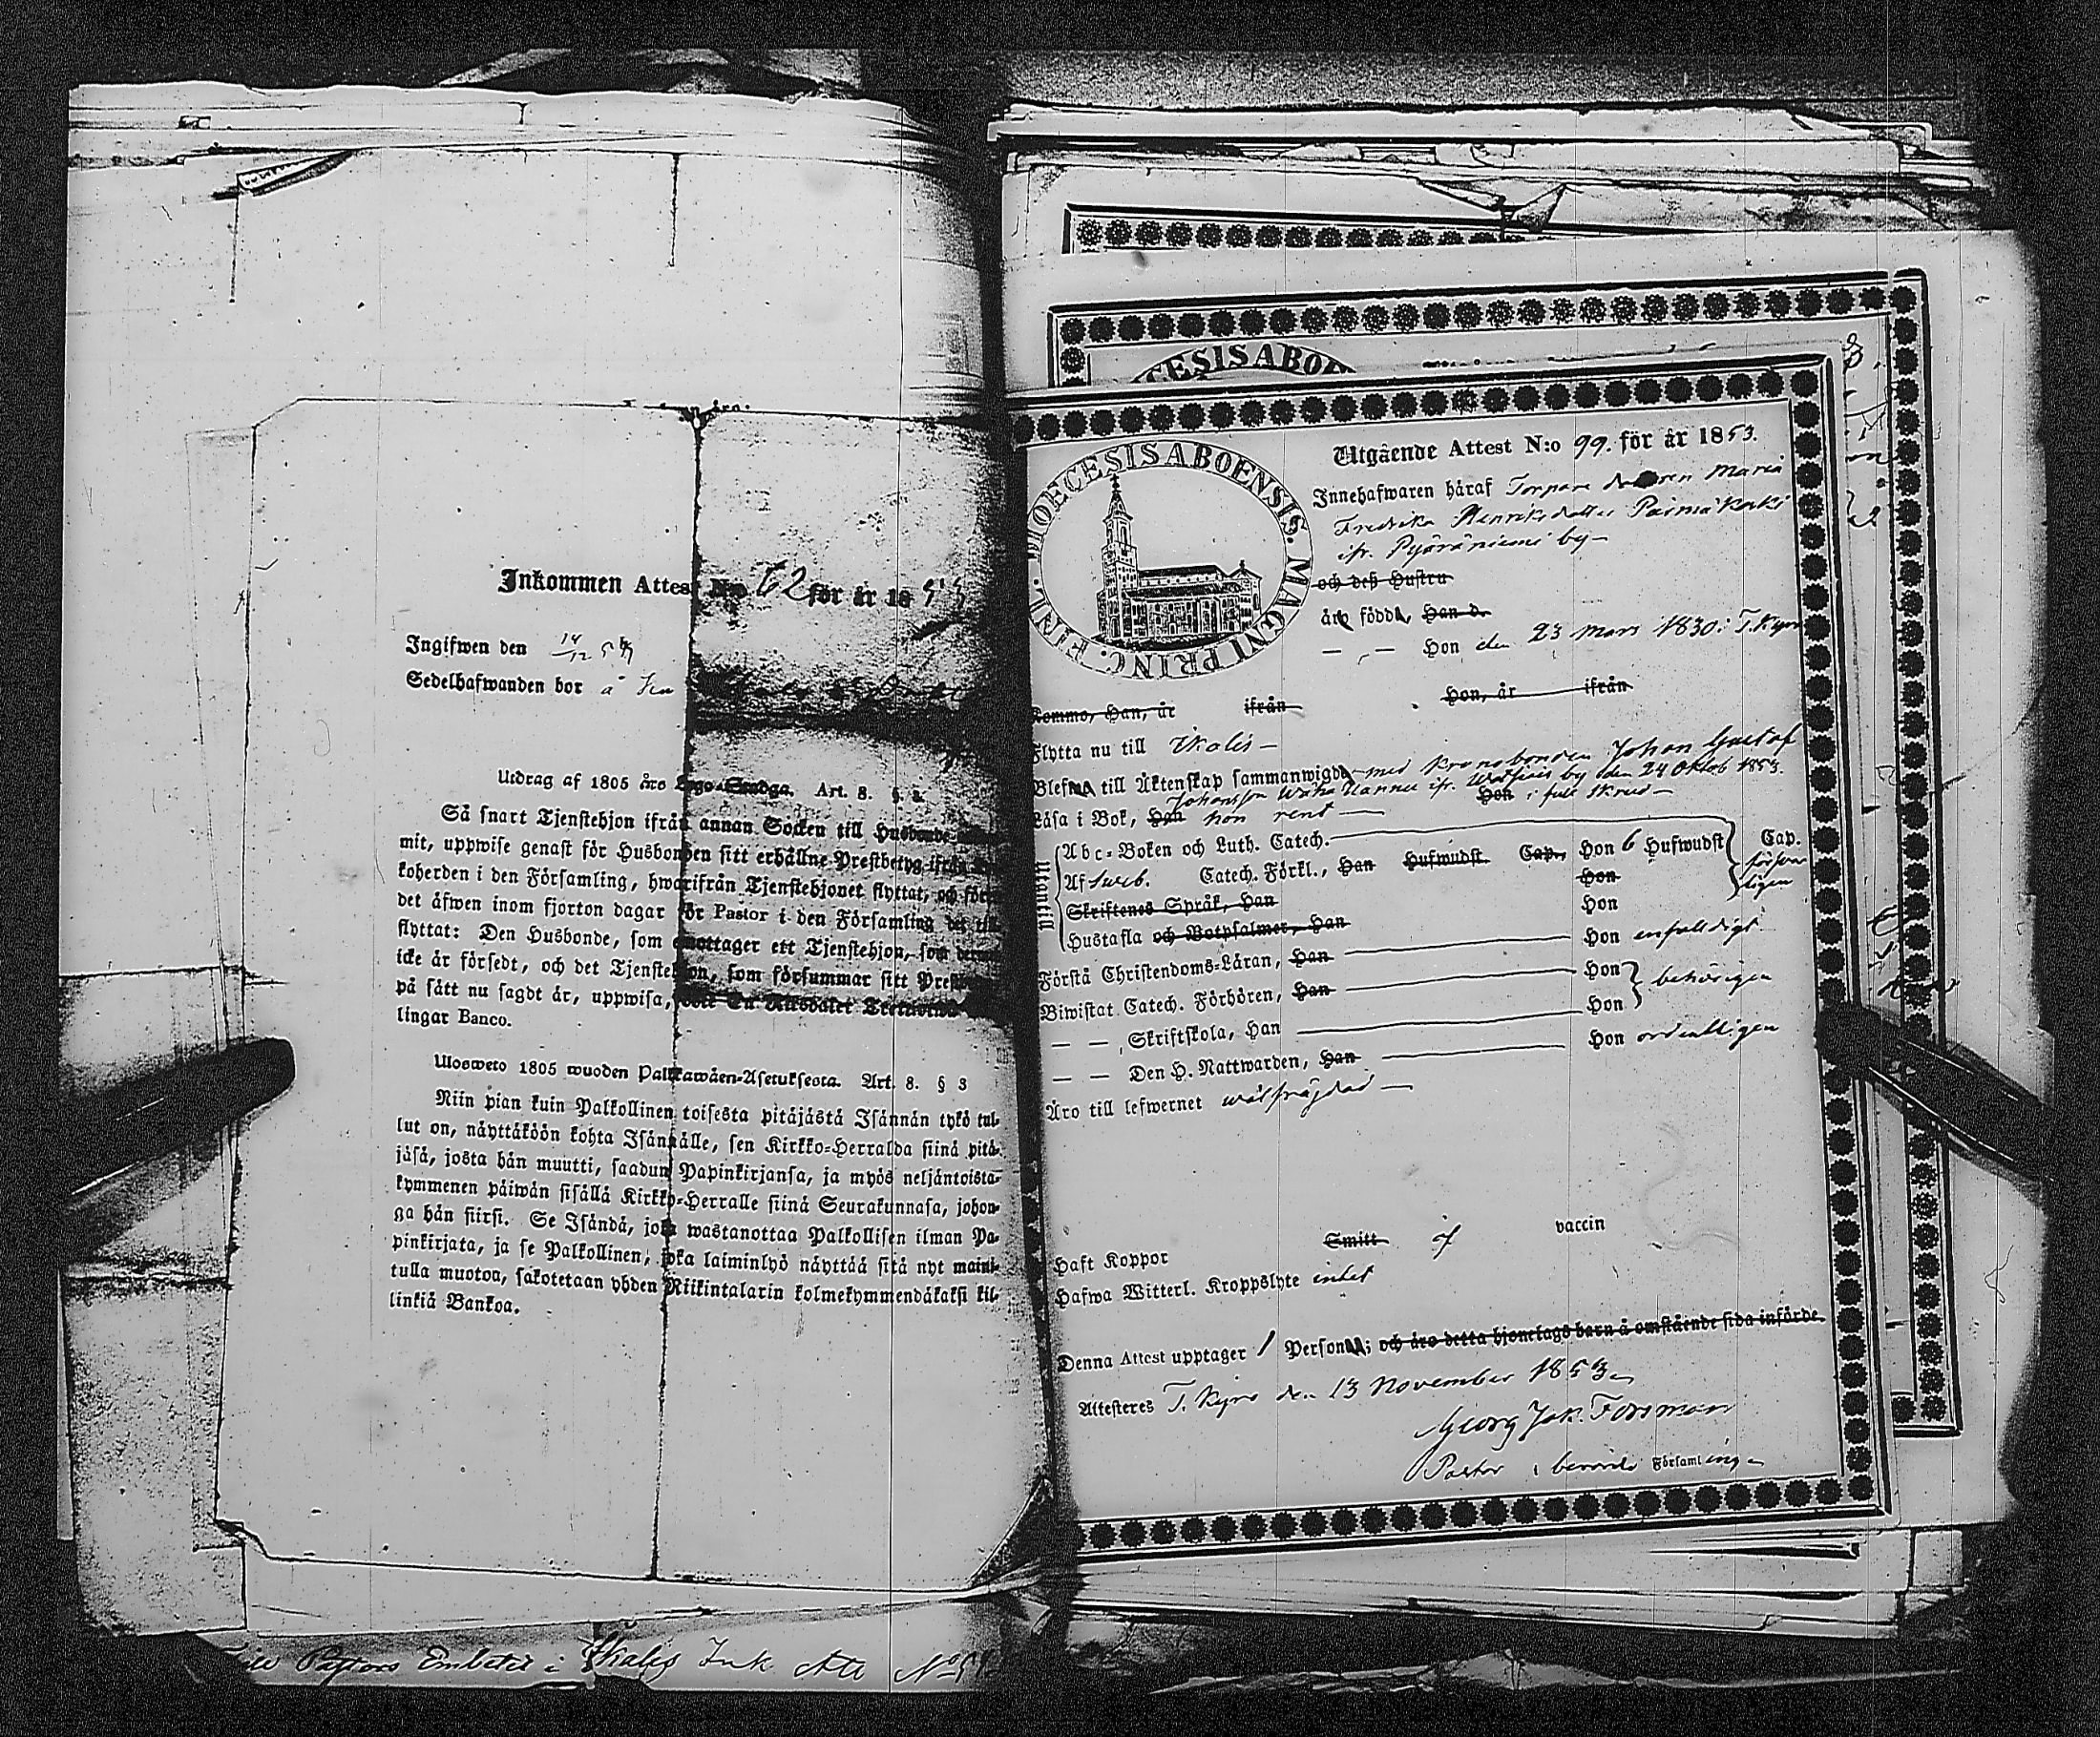 Inkommen Attest N:o 62 för år 1853
Ingifwen den 14/12 53
Sedelhafwanden bor å
Utdrag af 1805 års Lego-Stadga. Art. 8. §. 3.
Så snart Tjenstehjon ifrån annan Socken till Husbonde
mit, uppwise genast för Husbonden sitt erhållne Prestbetyg ifrån
koherden i den Församling, hwarifrån Tjenstehjonet flyttat, och före
det äfwen inom fjorton dagar för Pastor i den Församling det till
flyttat: Den Husbonde, som emottager ett Tjenstehjon, som dermed
icke är försedt, och det Tjenstehjon, som försummar sitt
på sätt nu sagdt är, uppwisa, böte En Riksdaler
lingar Banco.
Ulosweto 1805 wuoden Palkkawäen-Asetuksesta. Art. 8. § 3
Niin pian kuin Palkollinen toisesta pitäjästä Isännän tykö tul-
lut on, näyttäköön kohta Isännälle, sen Kirkko-Herralda siinä pitä-
jäsä, josta hän muutti, saadun Papinkirjansa, ja myös neljäntoista-
kymmenen päiwän sisällä Kirkko-Herralle siinä Seurakunnasa, johon-
ga hän siirsi. Se Isändä, joka wastanottaa Palkollisen ilman Pa-
pinkirjata, ja se Palkollinen, joka laiminlyö näyttää sitä nyt maini-
tulla muotoa, sakotetaan yhden Riikintalarin kolmekymmendäkaksi kil-
linkiä Bankoa.
Pastors Embetet i Ikalis Ink. Att N:o
DIOECESIS ABOENSIS. MAGNI PRINC. FINL.
DIOECESIS ABOE
Utgående Attest N:o 99. för år 1853.
Innehafwaren häraf Torpare dottren Maria
Fredrika Henriksdotter Paimäkoski
ifr. Pyöräniemi by
och deß Hustru
äro födda, Han d.
— „ — Hon den 23 Mars 1830 i T. Kyro
Komma, Han, år ifrån Hon, år ifrån
Flytta nu till Ikalis —
Blefwa till Äktenskap sammanwigde med Kronobonden Johan Gustaf
Johansson ifr. by den 24 Oktob 1853.
Läsa i Bok, Han hon rent — Hon i full skrud —
Utantill
Abc-Boken och Luth. Catech.
Af Sweb. Catech. Förkl., Han Hufwudst. Cap., Hon 6 Hufwudst Cap.
försvarligen
Skriftenes Språk, Han Hon
Hustafla och Botpsalmer, Han Hon
Förstå Christendoms-Läran, Han Hon enfalldigt
Biwistat Catech. Förhören, Han Hon behörigen
— — Skriftskola, Han Hon
— — Den H. Nattwarden, Han Hon ordentligen
Äro till lefwernet wälfrägdad —
Haft Koppor Smitt af vaccin
Hafwa Witterl. Kroppslyte intet
Denna Attest upptager 1 Person; och äro detta hjonelags barn å omstående sida införde.
Attesteres T. Kyro den 13 November 1853
Georg Jak. Forsman
Pastor i Församlingen